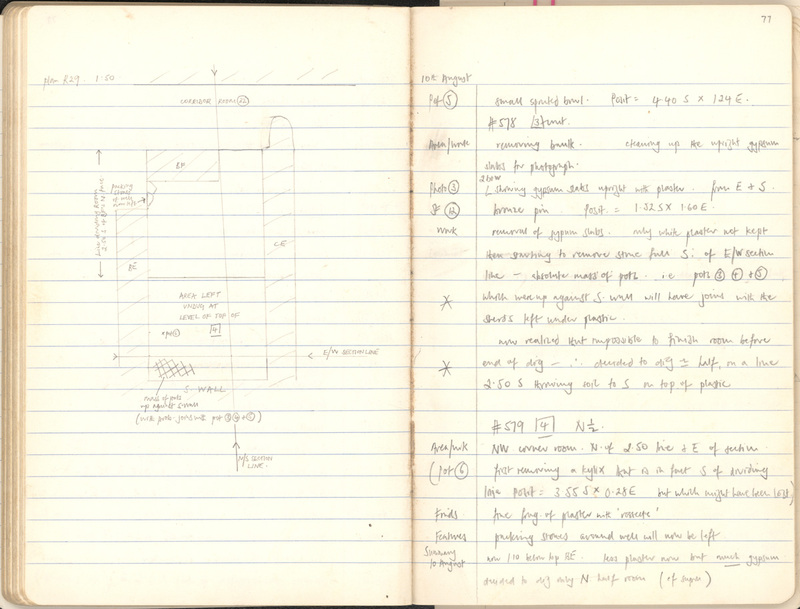 plan R29. 1:50
CORRIDOR ROOM (22)
BF
packing
Line dividing Room
2.50 S of N Face
BE
CE
AREA LEFT
UNDUG AT
LEVEL OF TOP OF
[4]
E/W SECTION LINE
S. WALL
mass of pots
up against S. wall
(with prob. joins with pot (3) (4) + (5))
N/S SECTION
LINE.
77
10th August
Pot (5) small spouted bowl. Posit = 4.40 S x 1.24 E.
#578 [3] cont.
Area/work removing baulk. cleaning up the upright gypsum
slabs for photograph.
Photo (3) showing gypsum slabs upright with plaster. from E + S.
bronze pin. Posit. = 1.32 S x 1.60 E.
Work removal of gypsum slabs. only white plaster not kept
then starting to remove some full S. of E/W section
line — absolute mass of pots. i.e. pots (3) (4) + (5)
* which were up against S. wall will have joins with the
sherds left under plastic.
now realized that impossible to finish room before
* end of dig — ∴ decided to dig ≃ half, on a line
2.50 S throwing soil to S on top of plastic
#579 [4] N½.
Area/wk NW corner room. N. of 2.50 line + E of section.
(Pot (6) first removing a kylix that is in fact S of dividing
line posit = 3.55 S x 0.28 E but which might have been lost)
Finds fine frag. of plaster with 'rosette'
Features packing stones around well will now be left
Summary
10 August now 1.10 below top BE. less plaster now but much gypsum
decided to dig only N half room (of super)